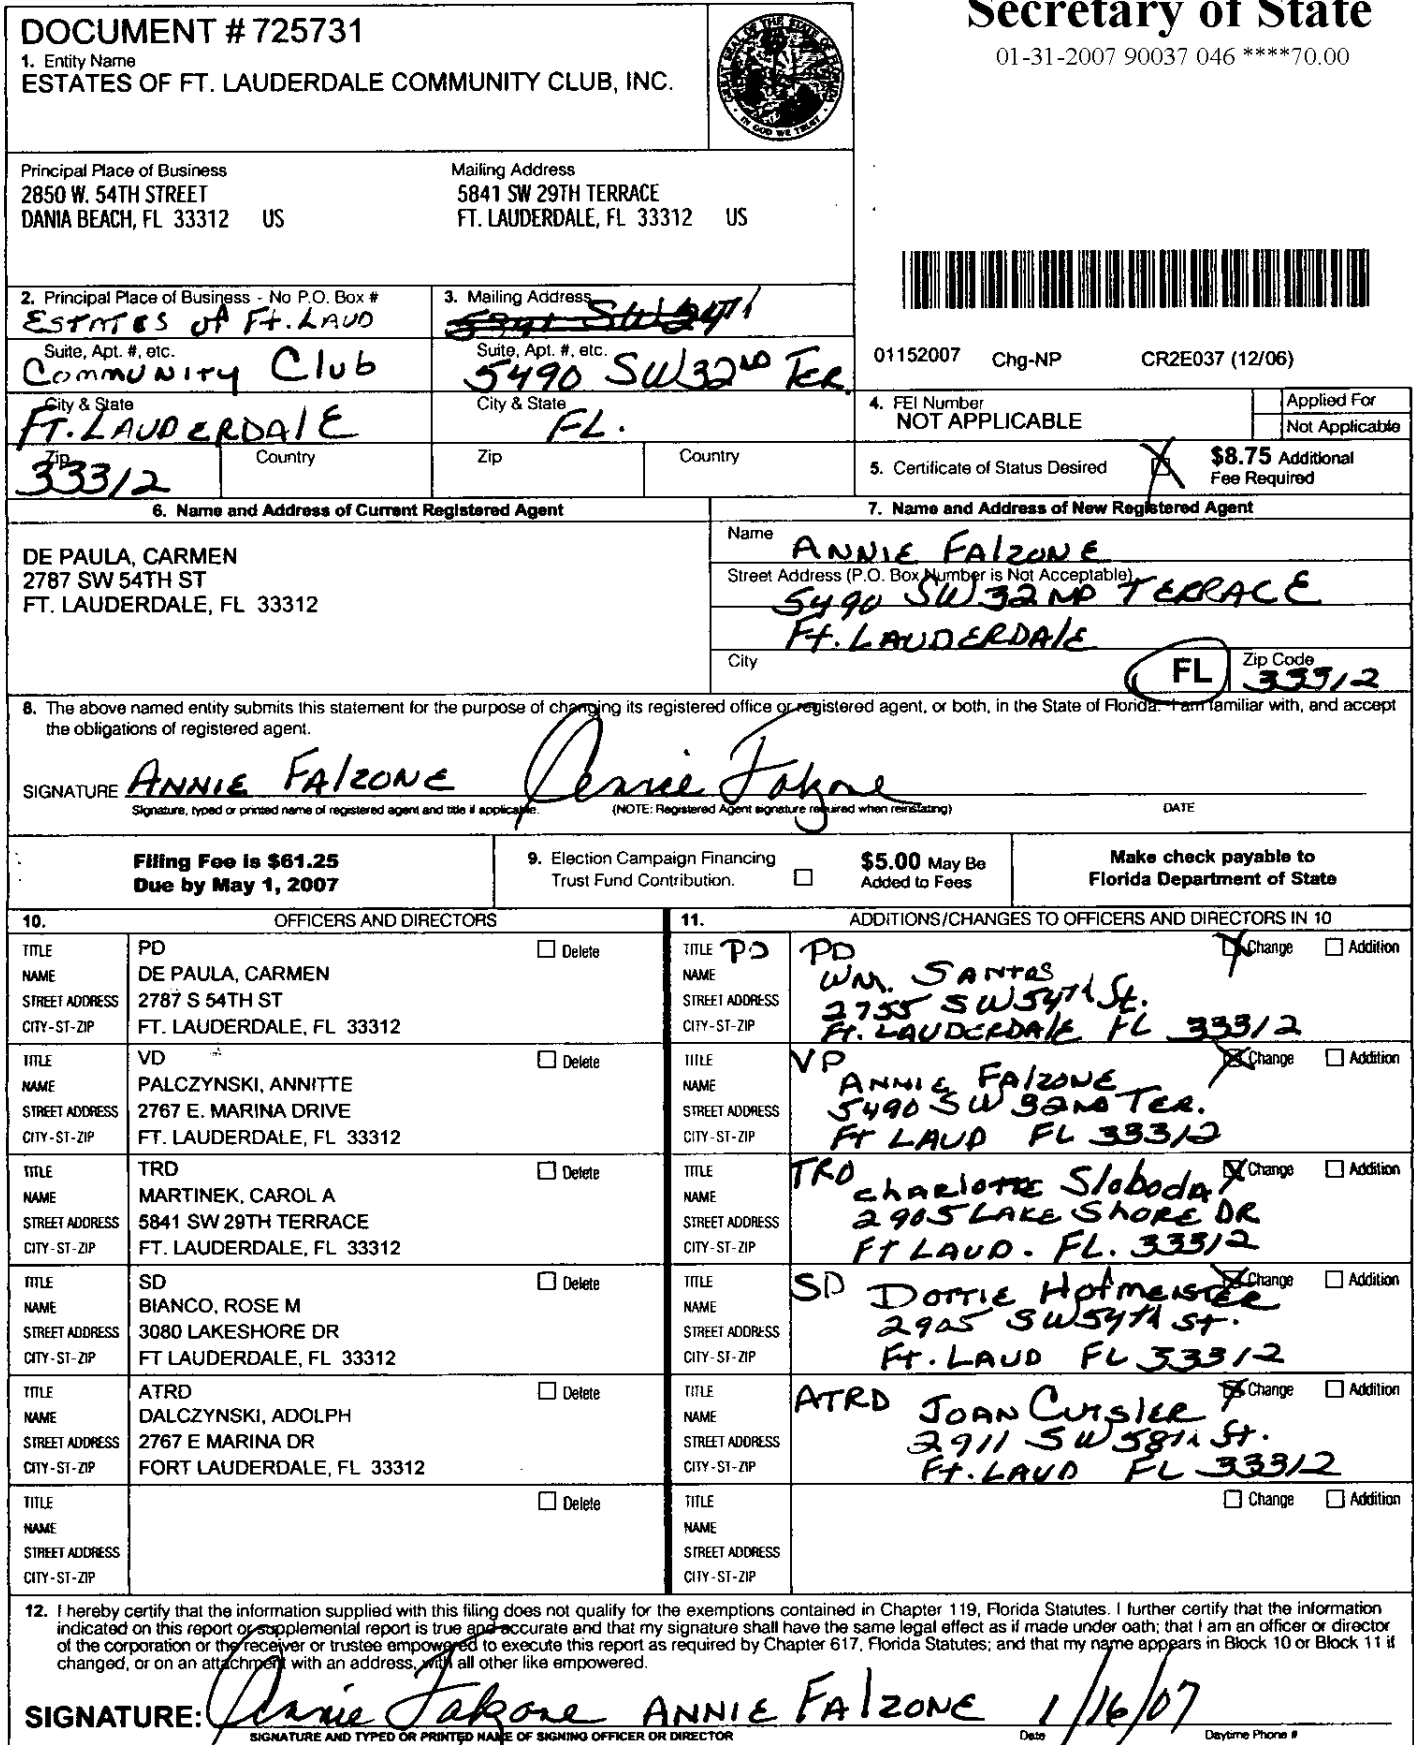 Secretary of State
01-31-2007 90037 046 ****70.00
DOCUMENT # 725731
1. Entity Name
ESTATES OF FT. LAUDERDALE COMMUNITY CLUB, INC.
GREAT SEAL OF THE STATE OF FLORIDA
IN GOD WE TRUST
Principal Place of Business
2850 W. 54TH STREET
DANIA BEACH, FL 33312 US
Mailing Address
5841 SW 29TH TERRACE
FT. LAUDERDALE, FL 33312 US
2. Principal Place of Business - No P.O. Box #
ESTATES of Ft. LAUD
3. Mailing Address
Suite, Apt. #, etc.
Community Club
Suite, Apt. #, etc.
5490 SW 32ND TER.
City & State
FT. LAUDERDALE
City & State
FL.
Zip
33312
Country
Zip
Country
01152007 Chg-NP CR2E037 (12/06)
4. FEI Number
NOT APPLICABLE
Applied For
Not Applicable
5. Certificate of Status Desired
X
$8.75 Additional
Fee Required
6. Name and Address of Current Registered Agent
DE PAULA, CARMEN
2787 SW 54TH ST
FT. LAUDERDALE, FL 33312
7. Name and Address of New Registered Agent
Name
ANNIE FALZONE
Street Address (P.O. Box Number is Not Acceptable)
5490 SW 32ND TERRACE
Ft. LAUDERDALE
City
FL
Zip Code
33312
8. The above named entity submits this statement for the purpose of changing its registered office or registered agent, or both, in the State of Florida. I am familiar with, and accept
the obligations of registered agent.
SIGNATURE ANNIE FALZONE Annie Falzone
Signature, typed or printed name of registered agent and title if applicable.
(NOTE: Registered Agent signature required when reinstating)
DATE
Filing Fee is $61.25
Due by May 1, 2007
9. Election Campaign Financing
Trust Fund Contribution.
$5.00 May Be
Added to Fees
Make check payable to
Florida Department of State
10. OFFICERS AND DIRECTORS
TITLE PD Delete
NAME DE PAULA, CARMEN
STREET ADDRESS 2787 S 54TH ST
CITY-ST-ZIP FT. LAUDERDALE, FL 33312
TITLE VD Delete
NAME PALCZYNSKI, ANNITTE
STREET ADDRESS 2767 E. MARINA DRIVE
CITY-ST-ZIP FT. LAUDERDALE, FL 33312
TITLE TRD Delete
NAME MARTINEK, CAROL A
STREET ADDRESS 5841 SW 29TH TERRACE
CITY-ST-ZIP FT. LAUDERDALE, FL 33312
TITLE SD Delete
NAME BIANCO, ROSE M
STREET ADDRESS 3080 LAKESHORE DR
CITY-ST-ZIP FT LAUDERDALE, FL 33312
TITLE ATRD Delete
NAME DALCZYNSKI, ADOLPH
STREET ADDRESS 2767 E MARINA DR
CITY-ST-ZIP FORT LAUDERDALE, FL 33312
TITLE Delete
NAME
STREET ADDRESS
CITY-ST-ZIP
11. ADDITIONS/CHANGES TO OFFICERS AND DIRECTORS IN 10
TITLE PD PD X Change Addition
NAME WM. SANTOS
STREET ADDRESS 2755 SW 54TH St.
CITY-ST-ZIP Ft. LAUDERDALE FL 33312
TITLE VP X Change Addition
NAME ANNIE FALZONE
STREET ADDRESS 5490 SW 32ND TER.
CITY-ST-ZIP Ft LAUD FL 33312
TITLE TRD X Change Addition
NAME CHARLOTTE Sloboda
STREET ADDRESS 2905 LAKE SHORE DR
CITY-ST-ZIP Ft LAUD. FL. 33312
TITLE SD X Change Addition
NAME DOTTIE HOFMEISTER
STREET ADDRESS 2905 SW 54TH St.
CITY-ST-ZIP Ft. LAUD FL 33312
TITLE ATRD X Change Addition
NAME JOAN
STREET ADDRESS 2911 SW 58TH St.
CITY-ST-ZIP Ft. LAUD FL 33312
TITLE Change Addition
NAME
STREET ADDRESS
CITY-ST-ZIP
12. I hereby certify that the information supplied with this filing does not qualify for the exemptions contained in Chapter 119, Florida Statutes. I further certify that the information
indicated on this report or supplemental report is true and accurate and that my signature shall have the same legal effect as if made under oath; that I am an officer or director
of the corporation or the receiver or trustee empowered to execute this report as required by Chapter 617, Florida Statutes; and that my name appears in Block 10 or Block 11 if
changed, or on an attachment with an address, with all other like empowered.
SIGNATURE: Annie Falzone ANNIE FALZONE 1/16/07
SIGNATURE AND TYPED OR PRINTED NAME OF SIGNING OFFICER OR DIRECTOR
Date
Daytime Phone #